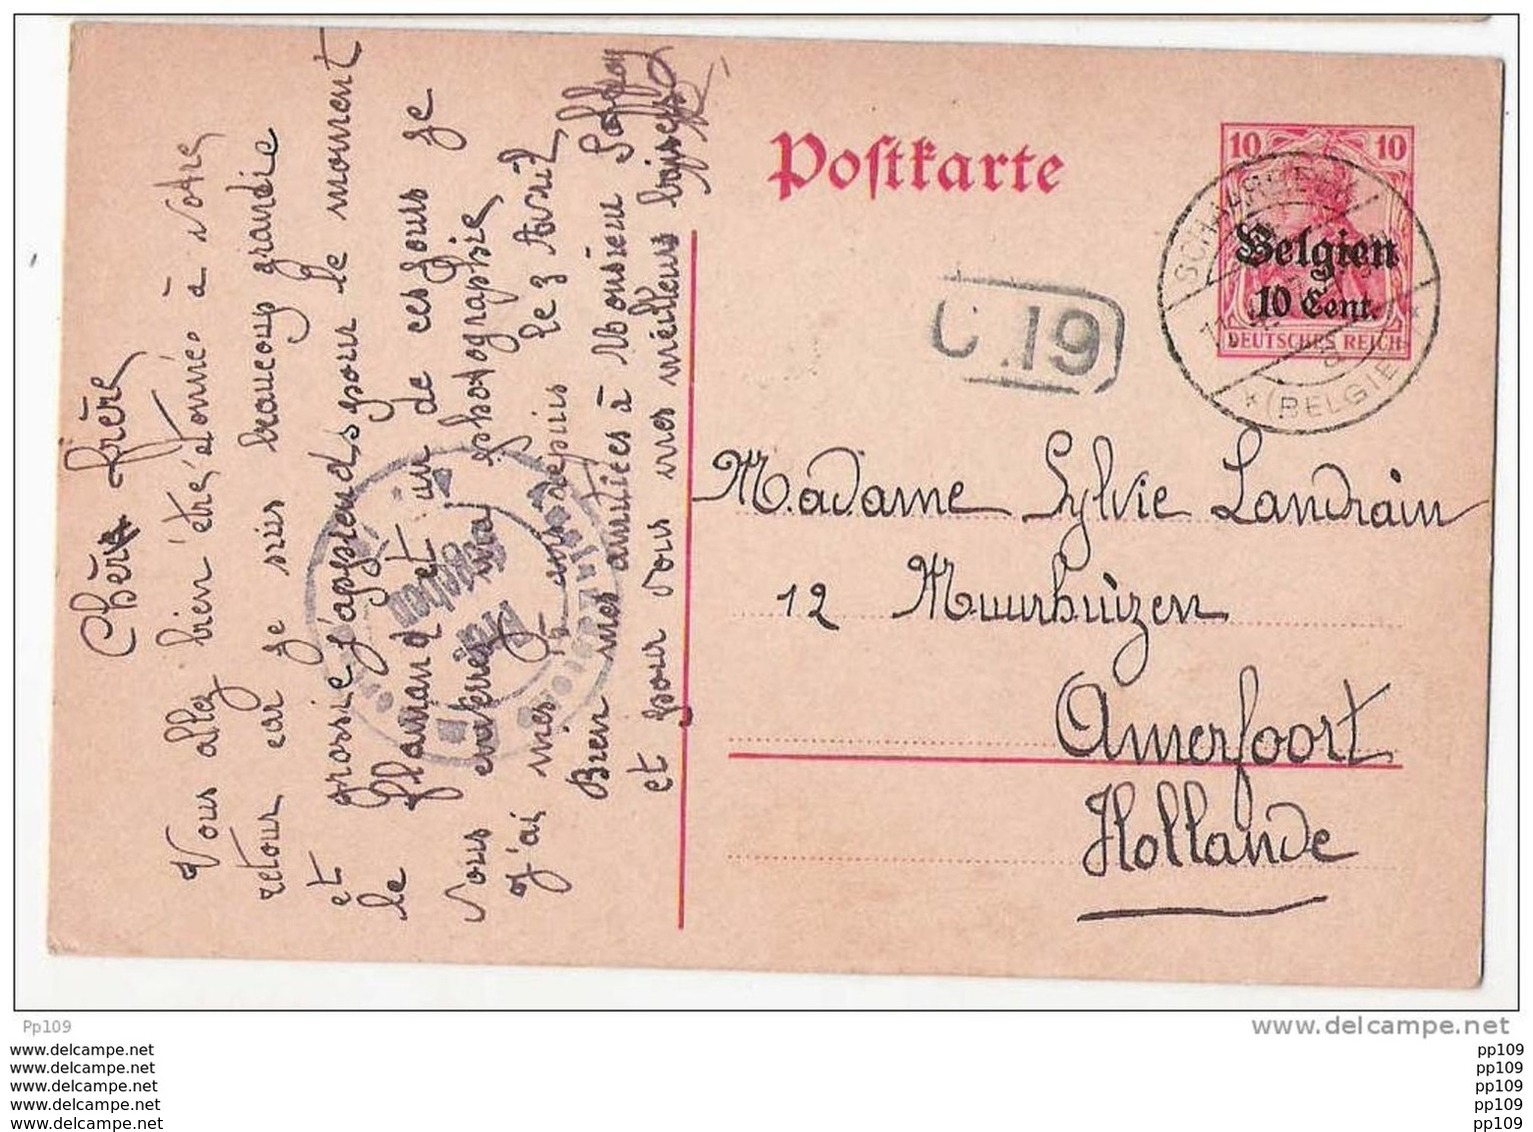 Postkarte
10 10
Belgien
10 Cent.
DEUTSCHES REICH
SCHAERBEEK
(BELGIE
C .19
Madame Sylvie Landrain
12 Muurhuizen
Amerfoort
Hollande
Chère frère
Vous allez bien être étonnés à votre
retour car je suis beaucoup grandie
et grossie j'apprends pour le moment
le flamand et un de ces jours je
vous enverrai ma photographie
J'ai mes ans depuis le 3 Avril
Bien mes amitiées à Monsieur
et pour vous mes meilleurs baisers
Geprüft
Pp109
www.delcampe.net
www.delcampe.net
www.delcampe.net
www.delcampe.net
www.delcampe.net
www.delcampe.net
pp109
pp109
pp109
pp109
pp109